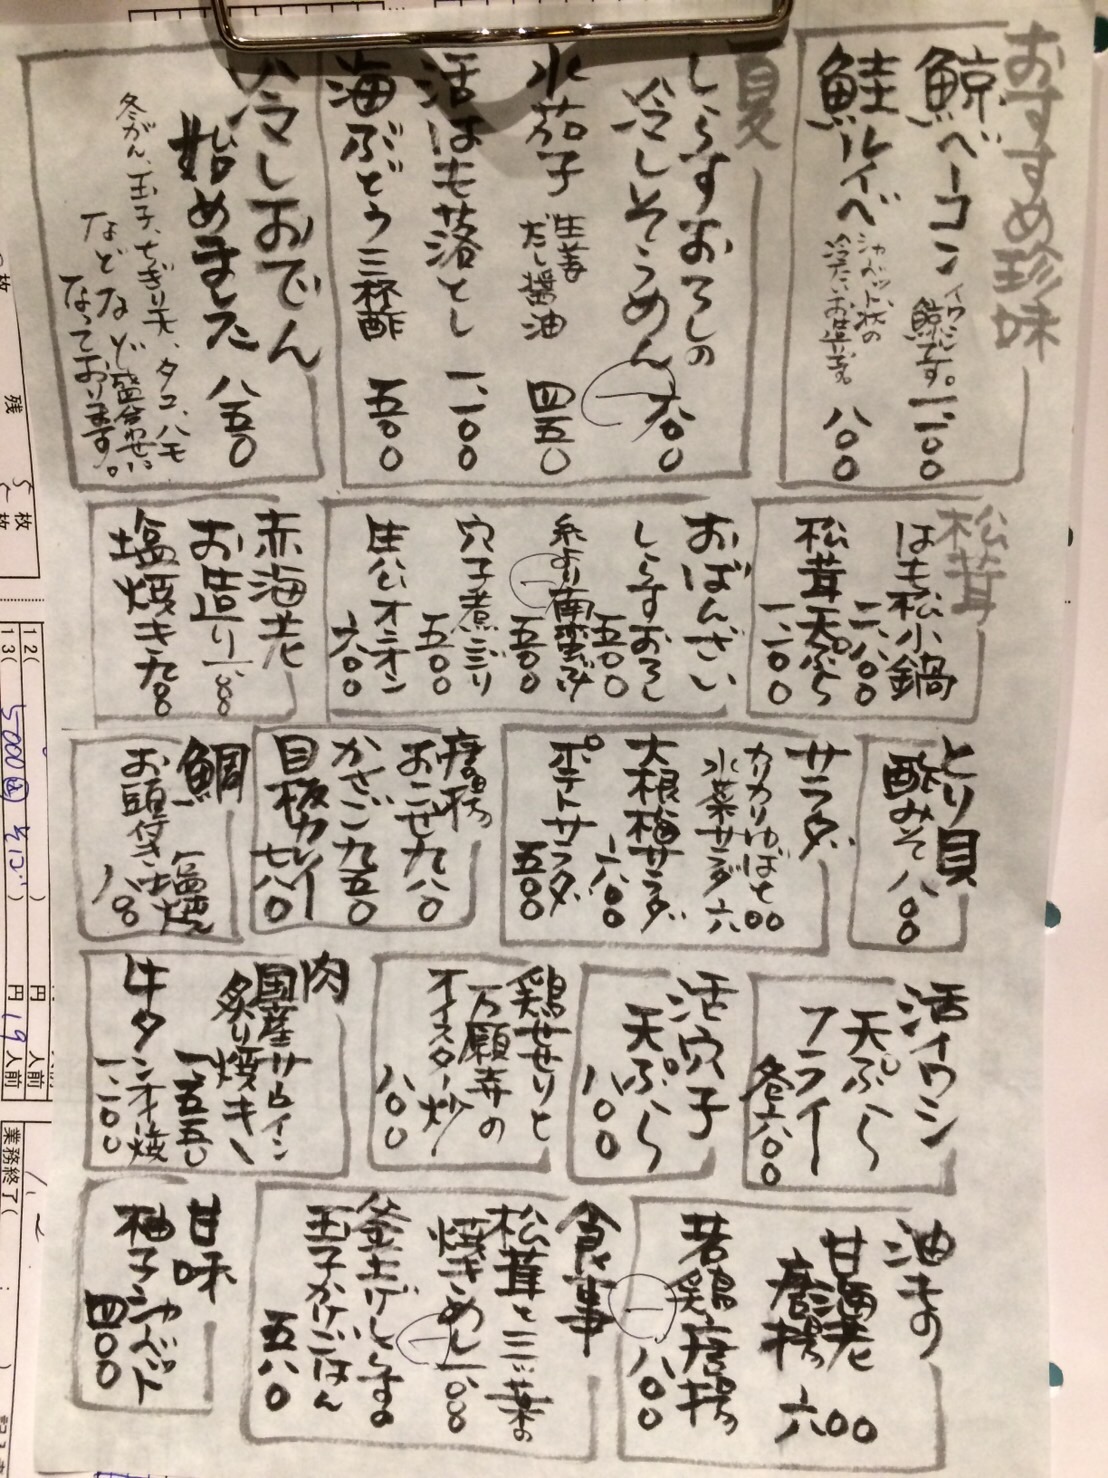 おすすめ珍味
鯨ベーコン イワシ鯨です。一、一〇〇
鮭ルイベ シャーベット状の冷たいお造り。 八〇〇
夏
しらすおろしの
冷しそうめん 六〇〇
水茄子 生姜だし醤油 四五〇
活はも落とし 一、一〇〇
海ぶどう三杯酢 五〇〇
冷しおでん
始めました 八五〇
冬がん、玉子、ちぎり天、タコ、ハモ
などなど盛合わせに
なっております。
松茸
はも松小鍋
二、八〇〇
松茸天ぷら
一、一〇〇
おばんざい
しらすおろし
五〇〇
糸より南蛮づけ
五〇〇
穴子煮こごり
五〇〇
生ハムオニオン
六〇〇
赤海老
お造り 一、八〇〇
塩焼き 九〇〇
とり貝
酢みそ 八〇〇
サラダ
カリカリゆばと
水菜サラダ 六〇〇
大根梅サラダ
六〇〇
ポテトサラダ
五〇〇
唐揚
おこぜ 九八〇
かさご 九五〇
目板カレイ
七八〇
鯛
お頭付き塩焼
八〇〇
活イワシ
天ぷら
フライ
各六〇〇
活穴子
天ぷら
八〇〇
鶏せせりと
万願寺の
オイスター炒
八〇〇
肉
国産サーロイン
炙り焼き
一、五五〇
牛タンネギ焼
一、一〇〇
油もの
甘海老
唐揚 六〇〇
若鶏唐揚
八〇〇
食事
松茸と三つ葉の
焼きめし 一、〇〇〇
釜上げしらすの
玉子かけごはん
五八〇
甘味
柚子シャーベット
四〇〇
残
枚
枚
12(
)
円
人前
13( 5000
)
円 19 人前
業務終了(